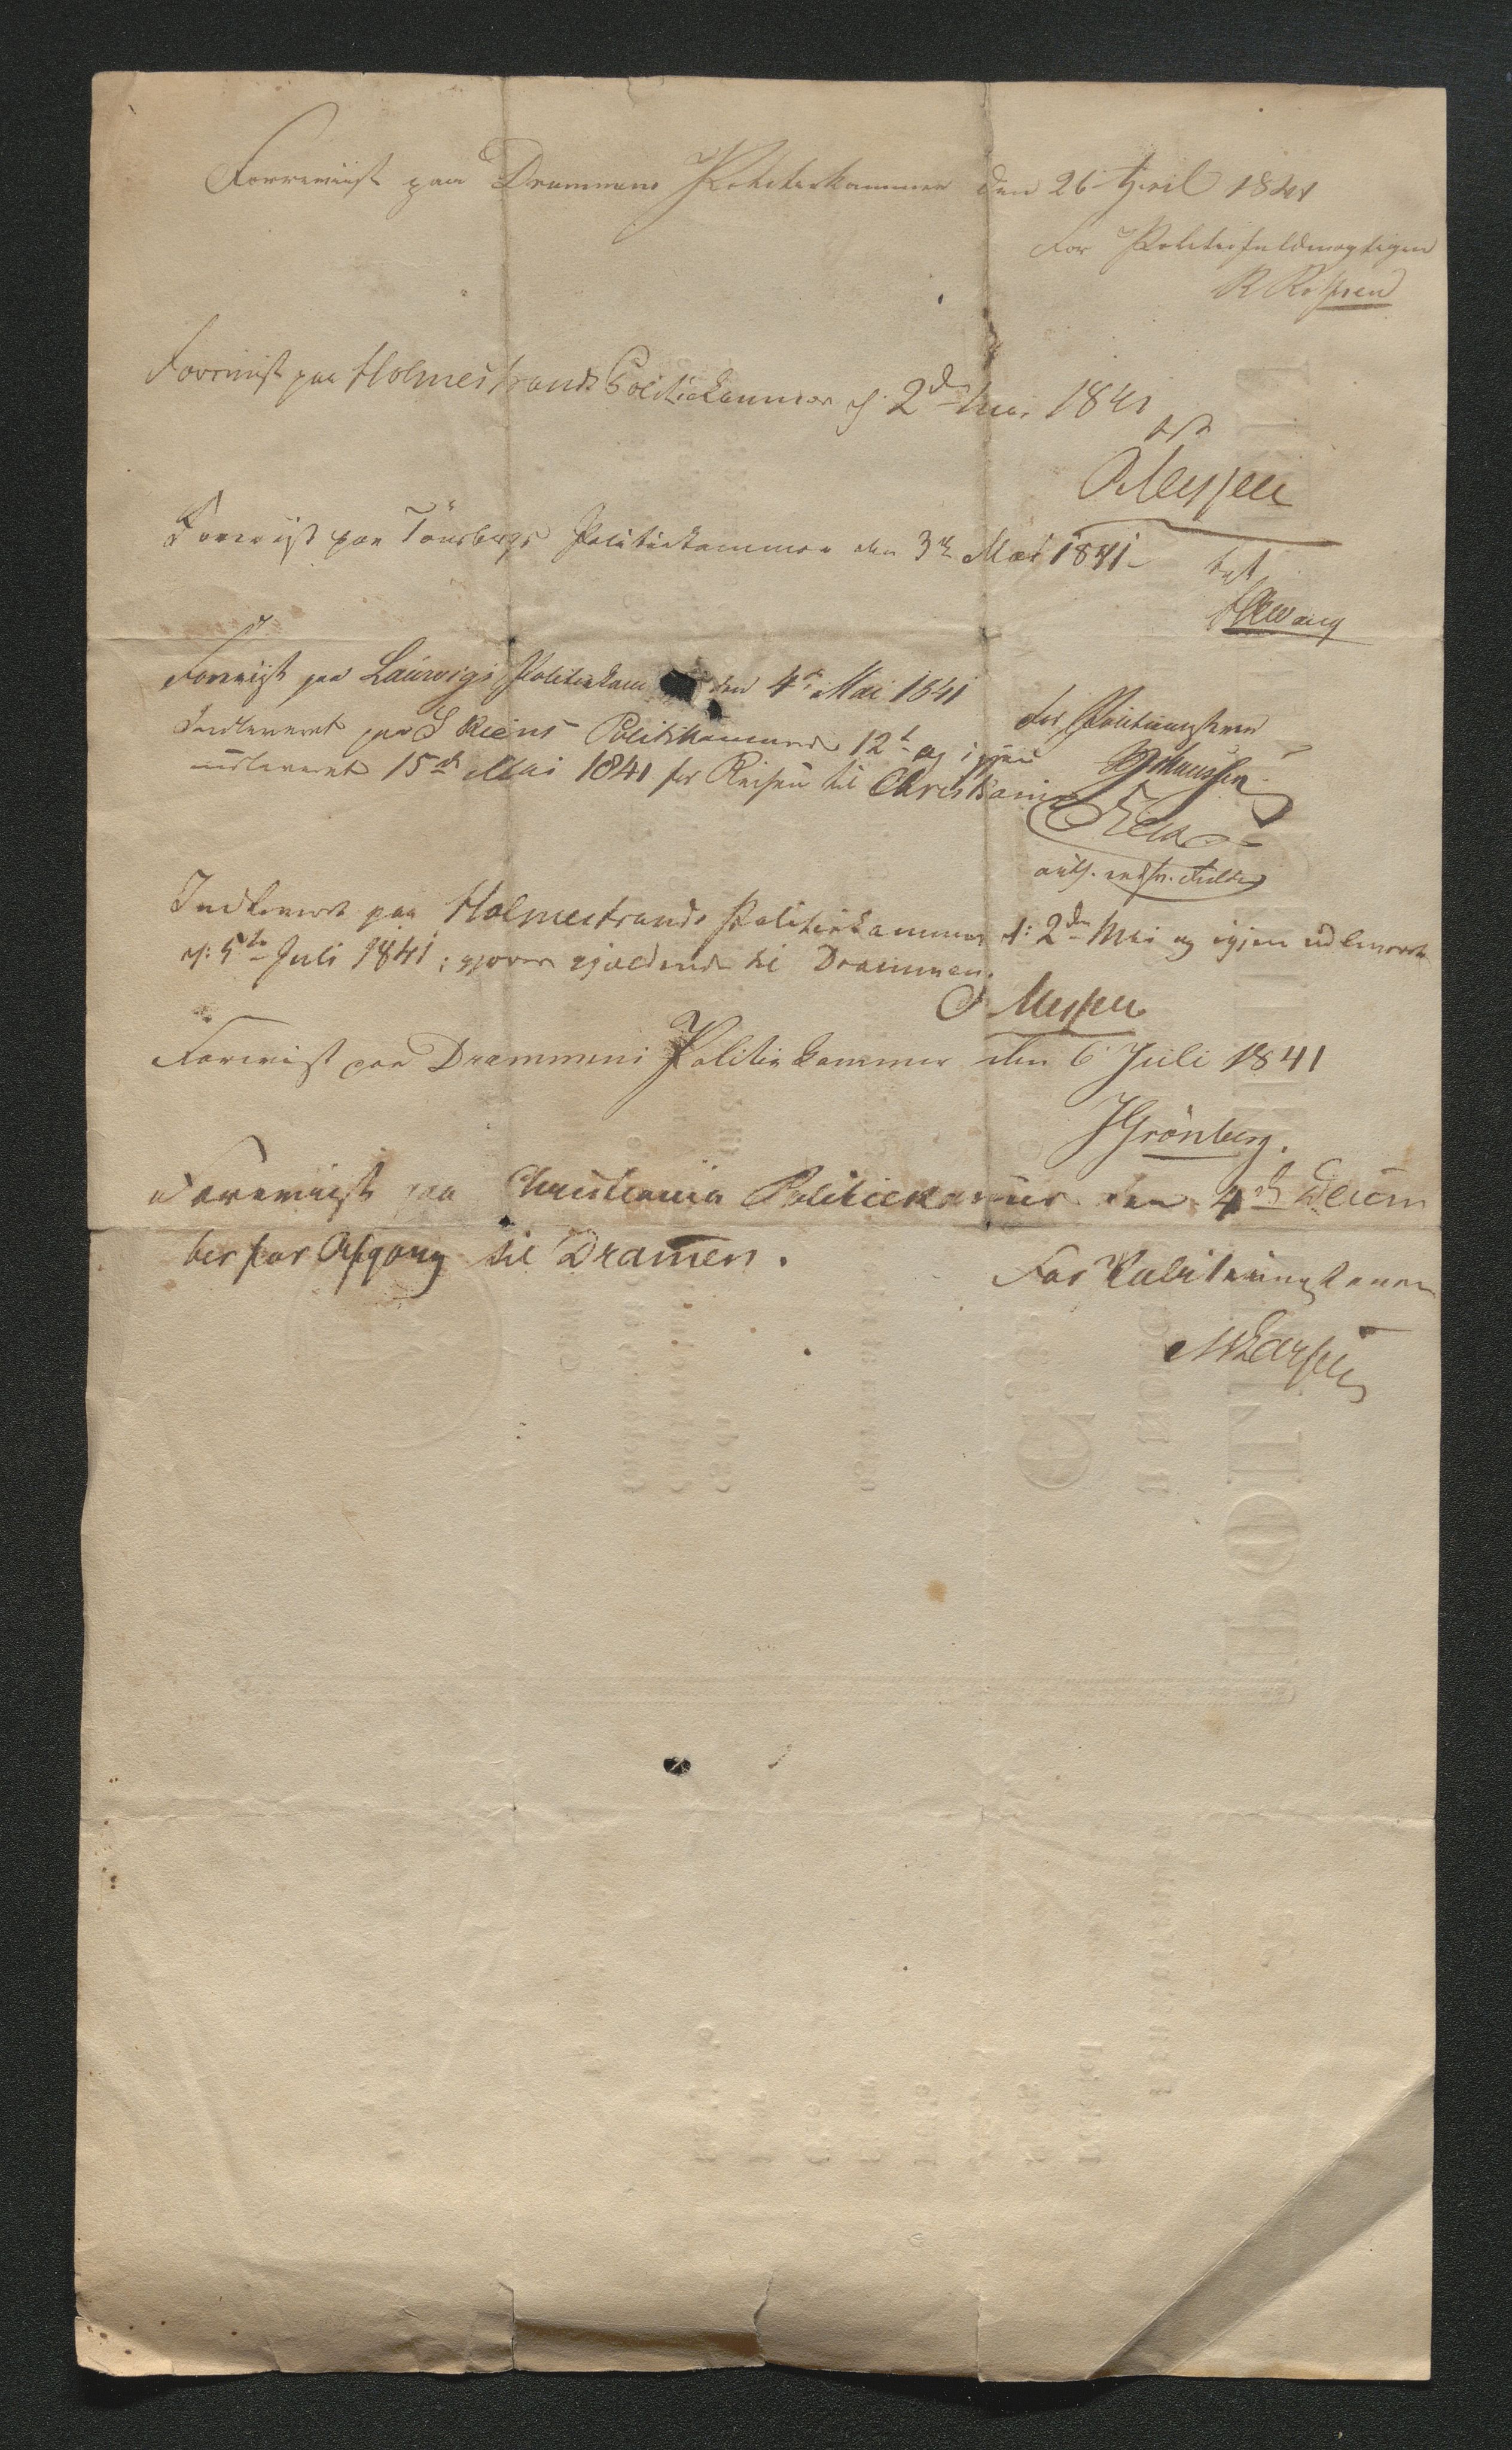 Foreviist paa Drammens Politiekammer den 26 April 1841
For Politiefuldmægtigen
Foreviist paa Holmestrands Politiekammer d: 2den Mai 1841
tst
Foreviist paa Tönsbergs Politiekammer den 3die Mai 1841
tst
Foreviist paa Laurvigs Politiekam den 4de Mai 1841
For Politiemesteren
Indleveret paa Skiens Politikammer 12te og igjen
udleveret 15de Mai 1841 for Reisen til Christiania
Indleveret paa Holmestrands Politiekammer d: 2den Mai og igjen udleveret
d: 5te Juli 1841; gjældende til Drammen.
Foreviist paa Drammens Politiekammer den 6 Juli 1841
Grönberg.
Foreviist paa Christiania Politiekammer den 4de Decem
ber for Afgang til Dramen.
For Politiemesteren